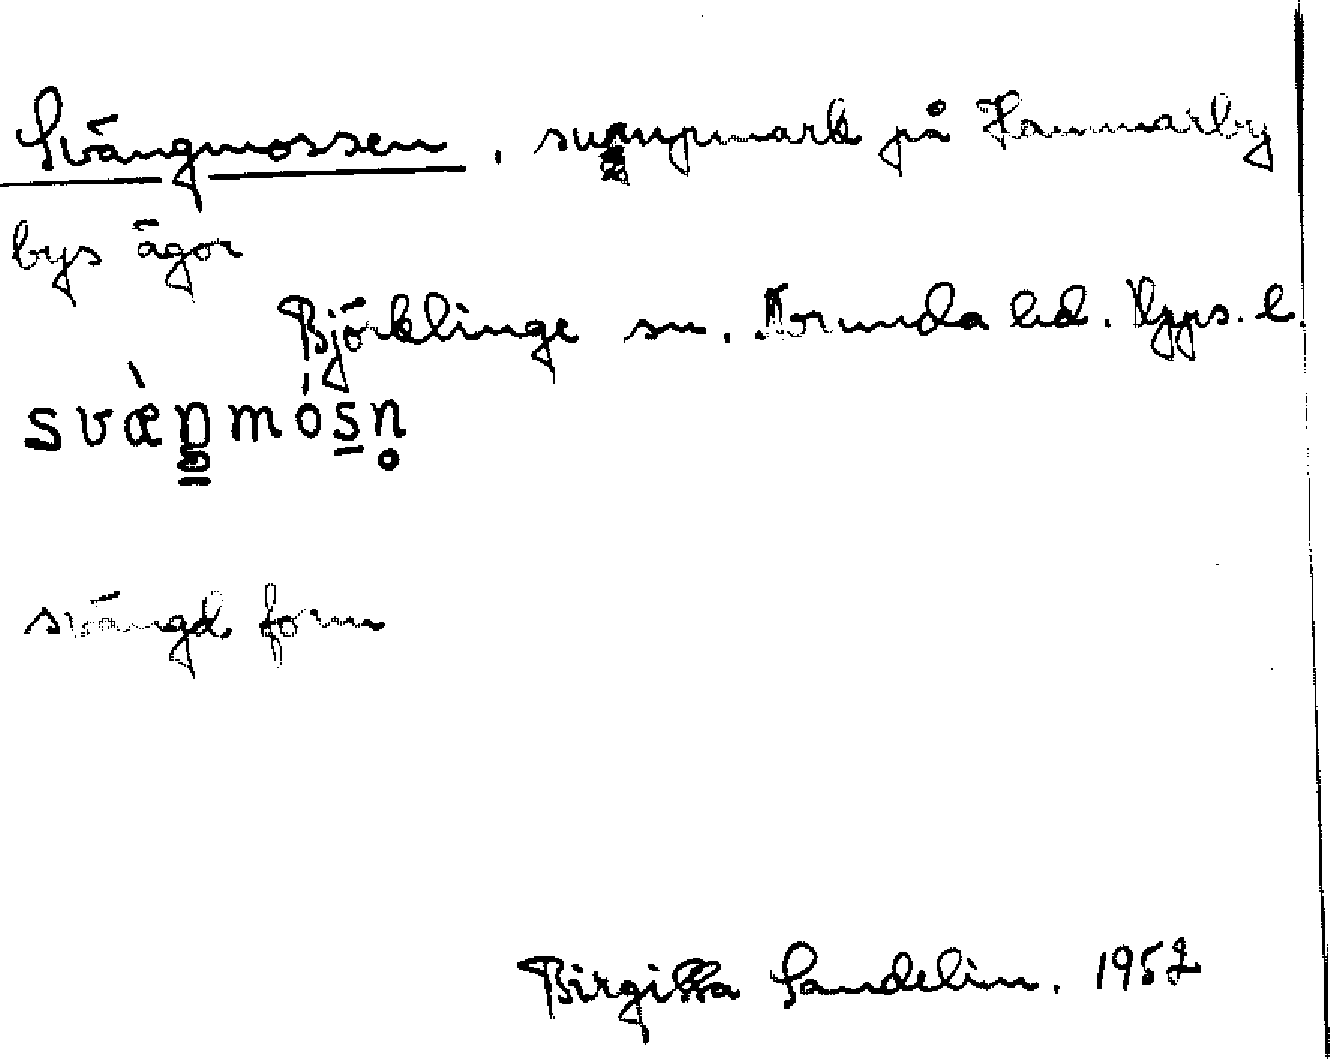 Svängmossen, sumpmark på Hammarby
bys ägor
Björklinge sn. Norunda hd. Upps. l.
svæ̀ŋmós̠n̥
svängd form
Birgitta Sandelin. 1952